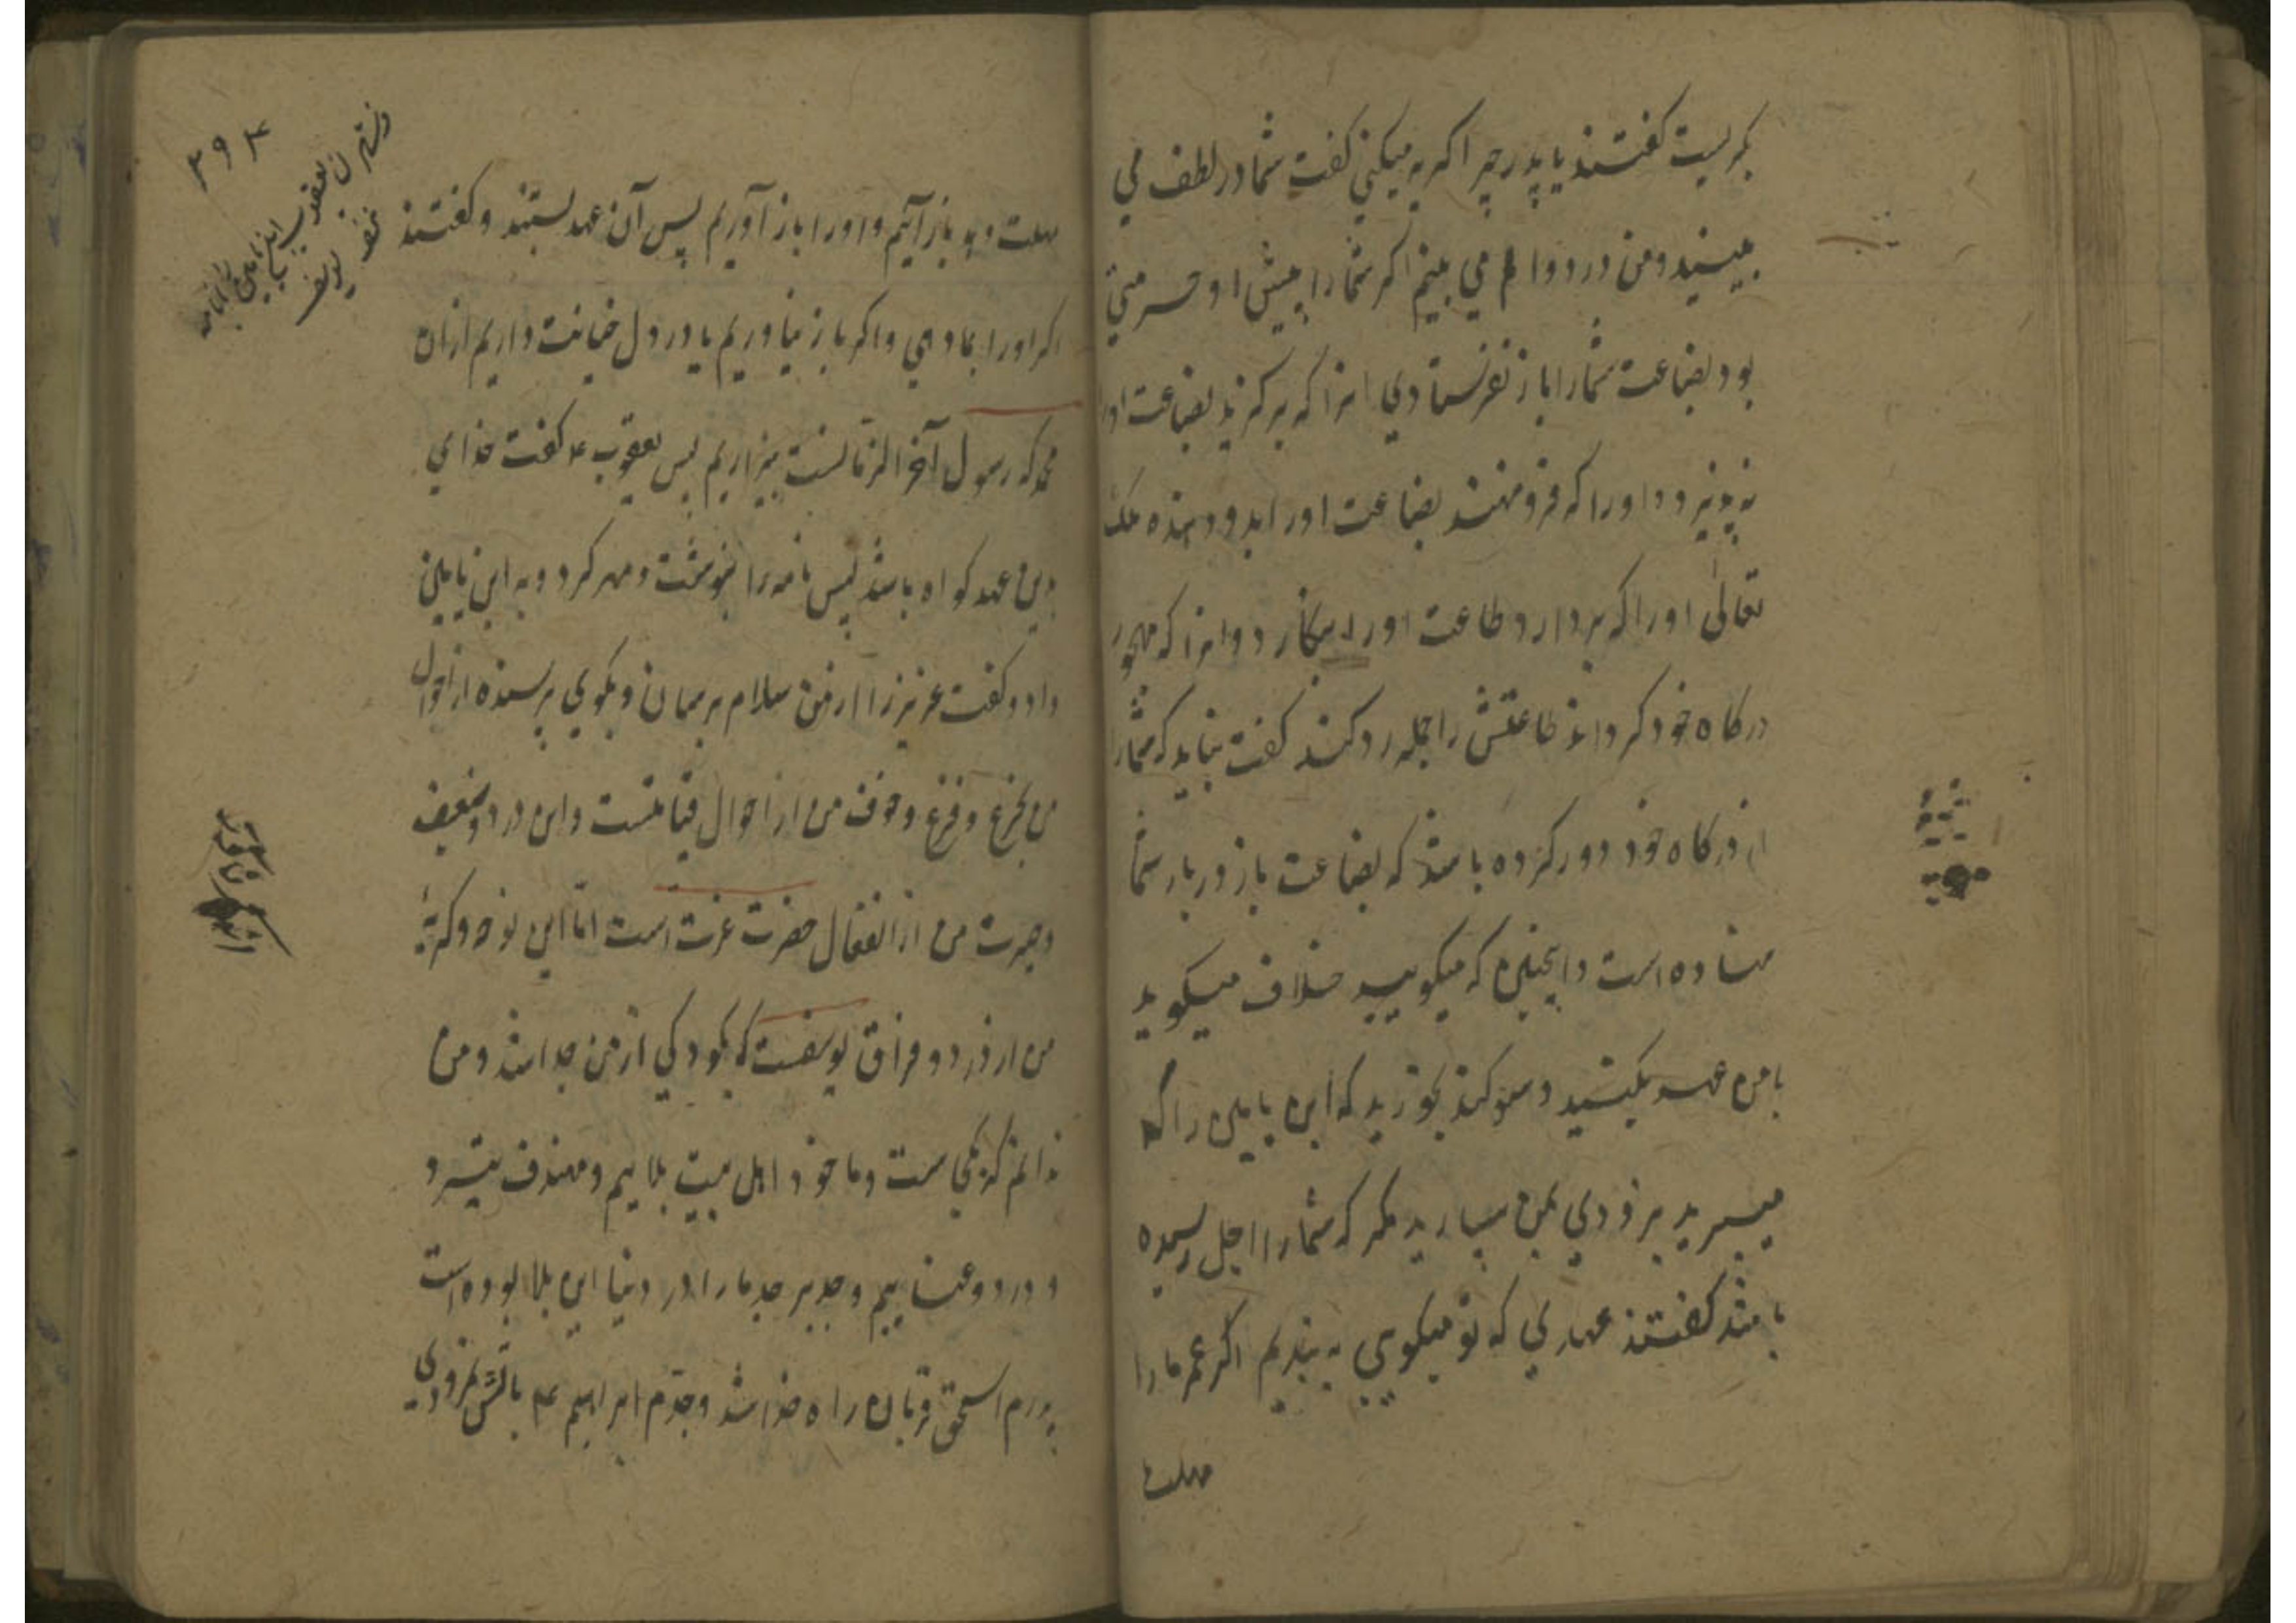 بگریست گفتند یا پدر چرا گریه میکنی گفت شما در لطف می
ببینید و من درد والم می بینم اگر شما را پیش او حرمتی
بود بضاعت شما را باز نفرستادی انرا که برگزید بضاعت او را
بپذیرد و اورا که فرو نهند بضاعت اورا بدو دهند ملک
تعالی اورا که بردارد طاعت اورا بگذارد وانرا که مهجور
درگاه خود گرداند طاعتش را جمله رد کند گفت نباید که شما را
از درگاه خود دور کرده باشد که بضاعت باز در بار شما
نهاده است و اینچنین که میگویید خلاف میگوید
با من عهد بکنید و سوگند بخورید که ابن یامین را که
میبرید بزودی بمن سپارید مگر که شما را اجل رسیده
باشد گفتند عهدی که تو میگویی به بندیم اگر عمر ما را
مهلت
۳۹۴
مهلت دهد باز آییم و اورا باز آوریم پس آن عهد بستند و گفتند
اگر اورا بما دهی و اگر باز نیاوریم یا در دل خیانت داریم ازان
محمد که رسول آخر الزمانست بیزاریم پس یعقوب ع گفت خدای
برین عهد گواه باشد پس نامه را بنوشت و مهر کرد و به ابن یامین
داد و گفت عزیز را از من سلام برسان و بگوی پرسنده از احوال
من جزع و فزع و خوف من از احوال قیامتست و این درد و ضعف
و حیرت من از انفعال حضرت عزت است اما این نوحه و گریهٔ
من از درد و فراق یوسفست که بکودکی از من جدا شد و من
ندانم که کجاست و ما خود اهل بیت بلاییم و هدف تیر
و درد و عناییم و جد بر جد ما را در دنیا این بلا بوده است
پدرم اسحق قربان راه خدا شد و جدم ابراهیم ع باتش نمرودی